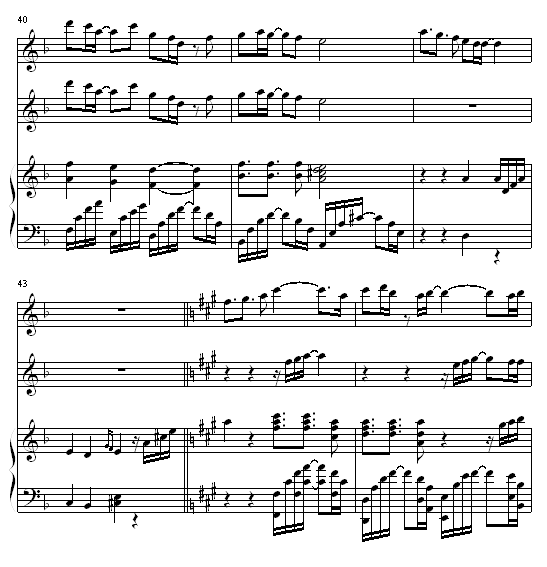 40
43